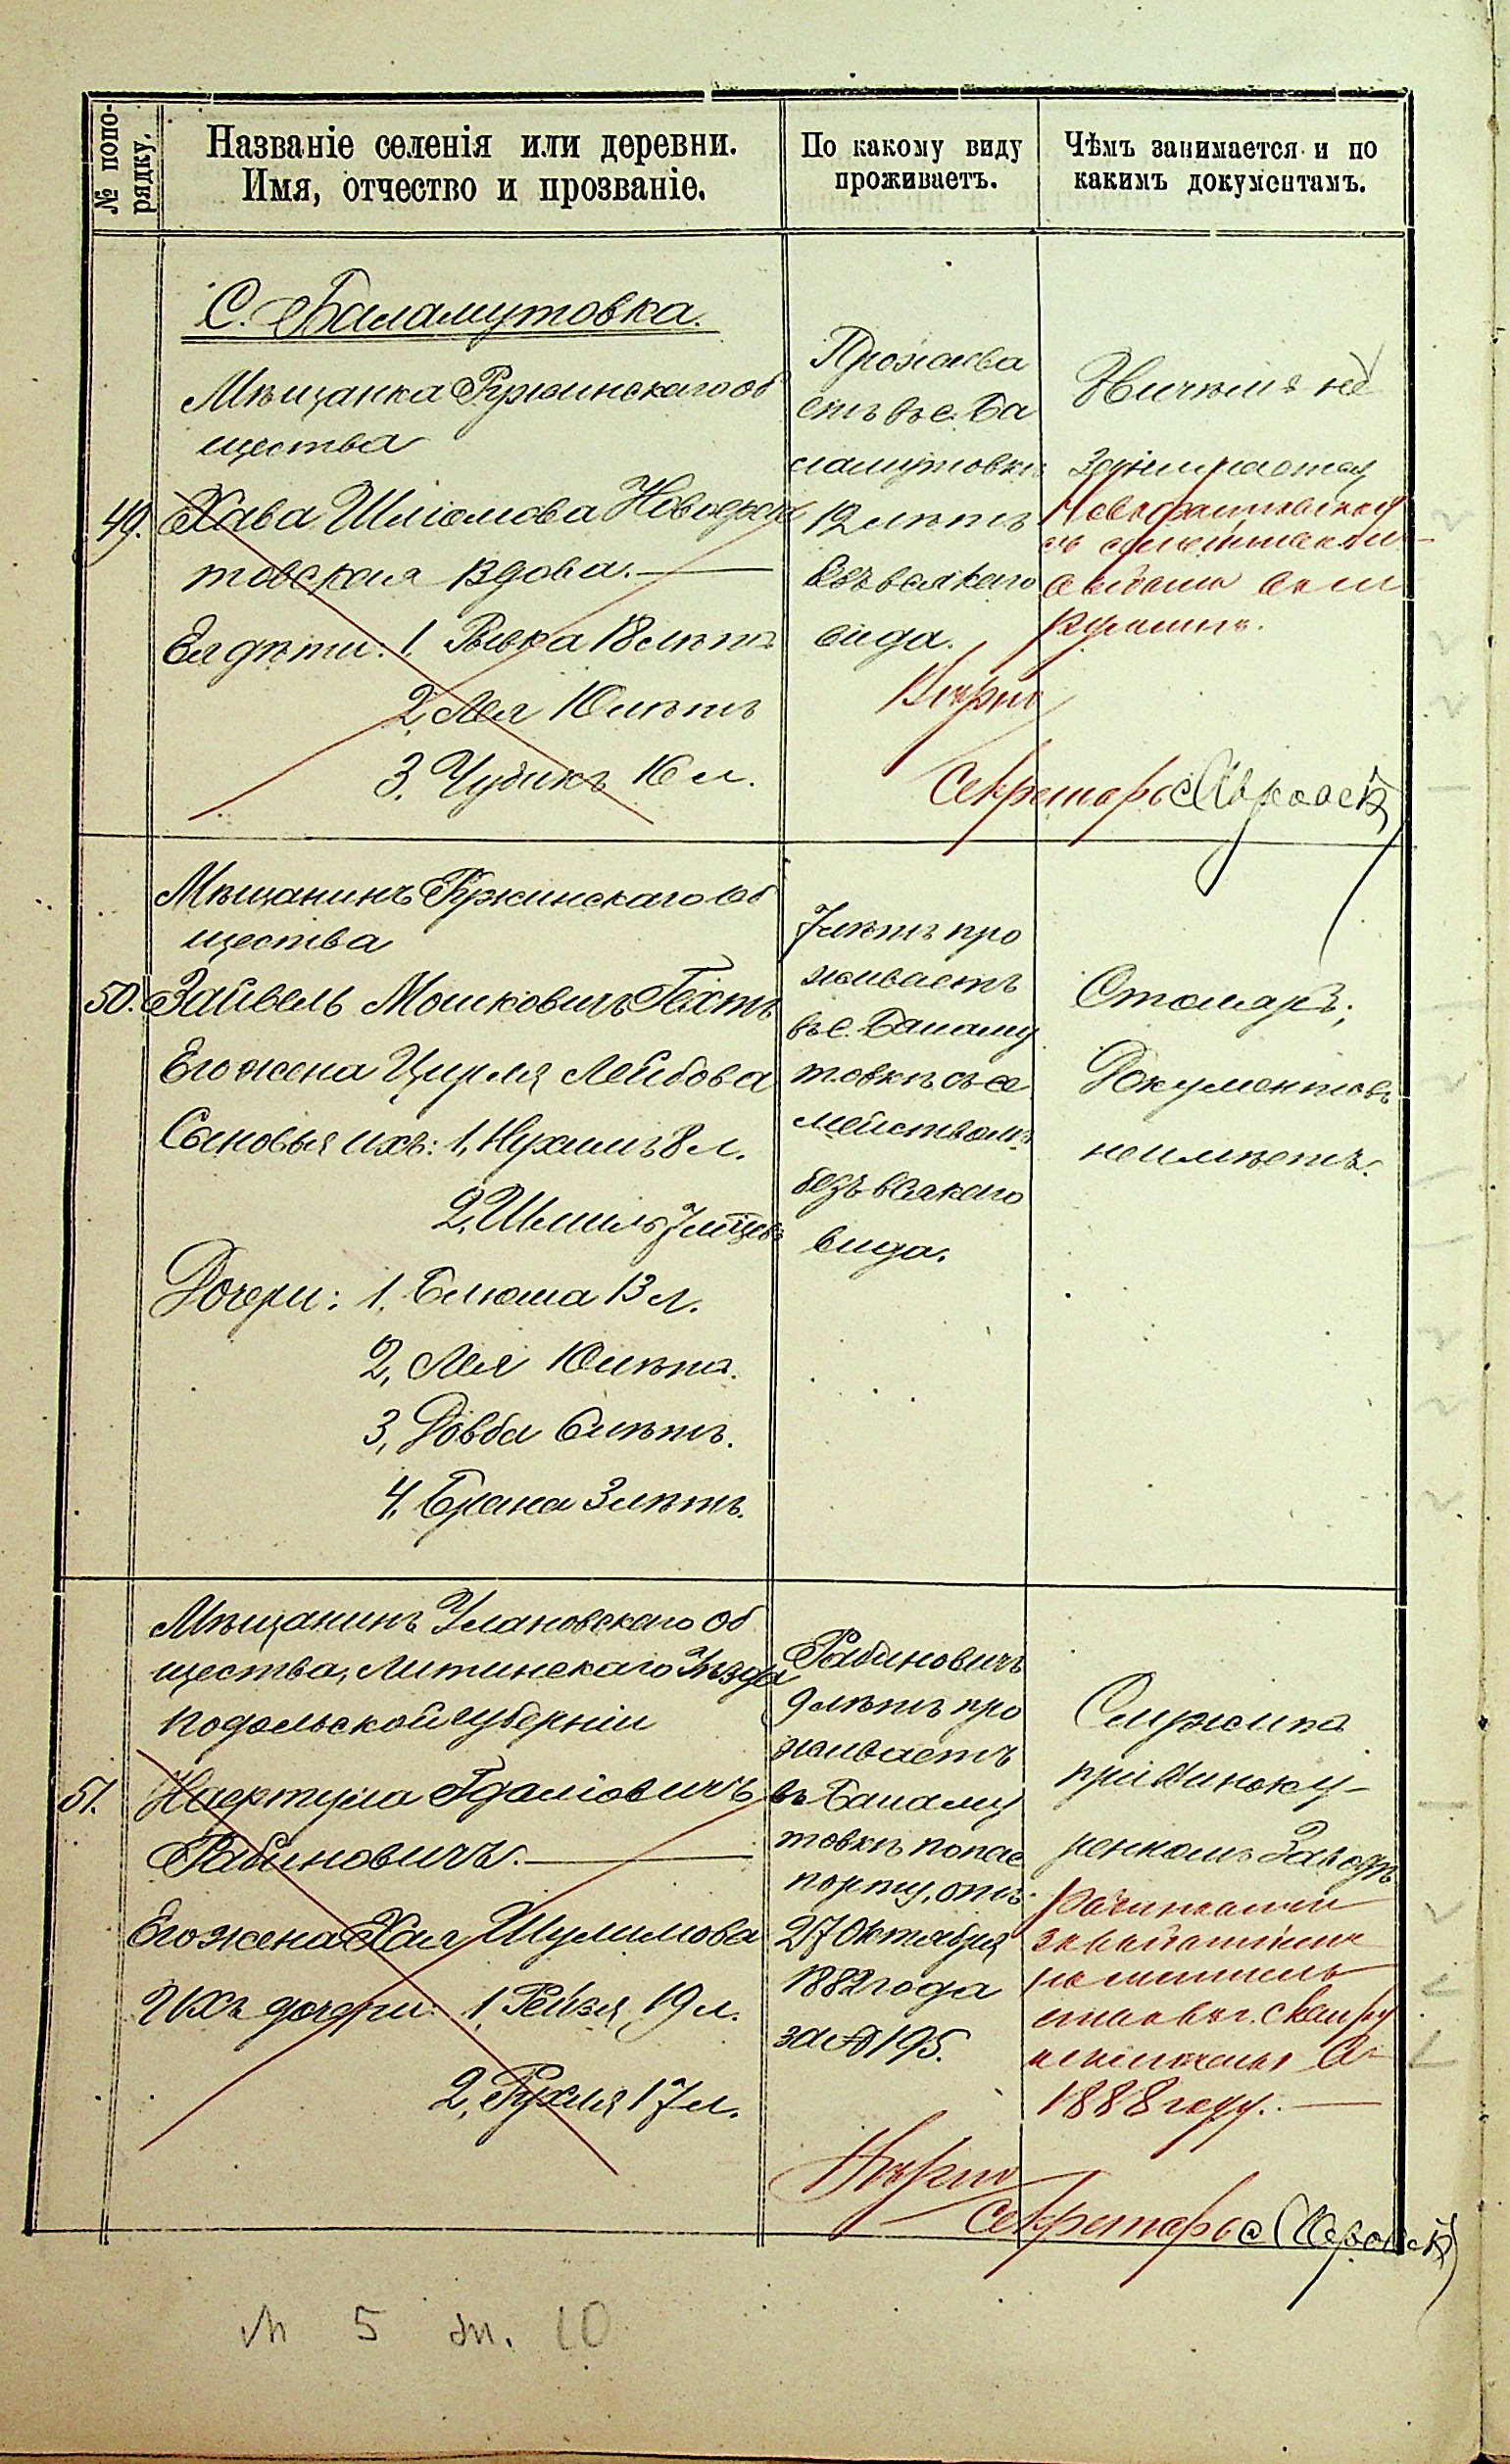 № попо-
рядку.
Названіе селенія или деревни.
Имя, отчество и прозваніе.
По какому виду
проживаетъ.
Чѣмъ занимается и по
какимъ документамъ.
С. Баламутовка.
Мѣщанка Ружинскаго об
щества
49. Хава Шліомова Новофас
товская вдова.
Ея дѣти: 1, Рывка 18 лѣтъ
2, Лея 10 лѣтъ
3, Чубикъ 16 л.
Прожива
етъ въ с. Ба
ламутовкѣ
12 лѣтъ
безъ всякаго
вида.
Вѣрно
Ничѣмъ не
занимается
Новофастовская
съ семействомъ
Секретарь
Мѣщанинъ Ружинскаго об
щества
50. Зайвель Мошковичъ Гехтъ
Его жена Цирля Лейбова
Сыновья ихъ: 1, Нухимъ 8 л.
2, Шмиль 7 мѣсяц.
Дочери: 1, Блюма 13 л.
2, Лея 10 лѣтъ.
3, Довба 6 лѣтъ.
4, Брана 3 лѣтъ.
7 лѣтъ про
живаетъ
въ с. Баламу
товкѣ съ се
мействомъ
безъ всякаго
вида.
Столяръ;
Документовъ
не имѣетъ.
Мѣщанинъ Улановскаго об
щества, Литинскаго Уѣзда
Подольской губерніи
51. Нафтула Гдаліовичъ
Рабиновичъ.
Его жена Хая Шулимова
Ихъ дочери: 1, Рейзя 19 л.
2, Рухля 17 л.
Рабиновичъ
9 лѣтъ про
живаетъ
въ Баламу
товкѣ по пас
порту, отъ
27 Октября
1882 года
за № 195.
Служитъ
при Виноку-
ренномъ Заводѣ
1888 году.
Вѣрно
Секретарь
5 10